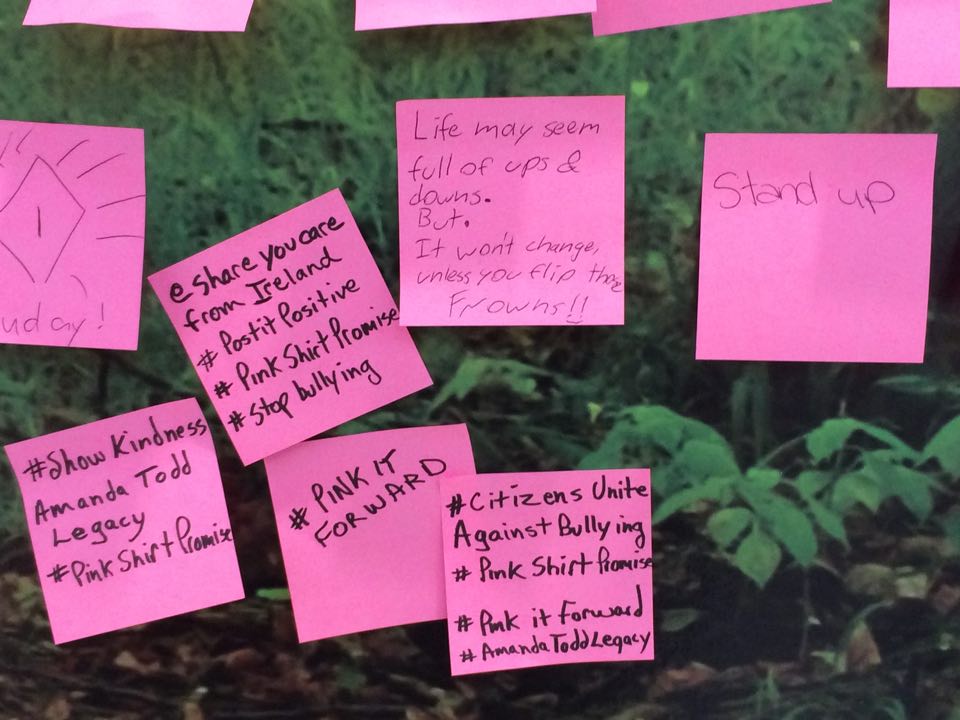 Life may seem
full of ups &
downs.
But.
It won't change,
unless you flip those
Frowns!!
Stand up
uday!
e share you care
from Ireland
# Postit Positive
# Pink Shirt Promise
# Stop bullying
#Show Kindness
Amanda Todd
Legacy
#Pink Shirt Promise
# PINK IT
FORWARD
#Citizens Unite
Against Bullying
# Pink Shirt Promise
# Pink it Forward
# AmandaToddLegacy